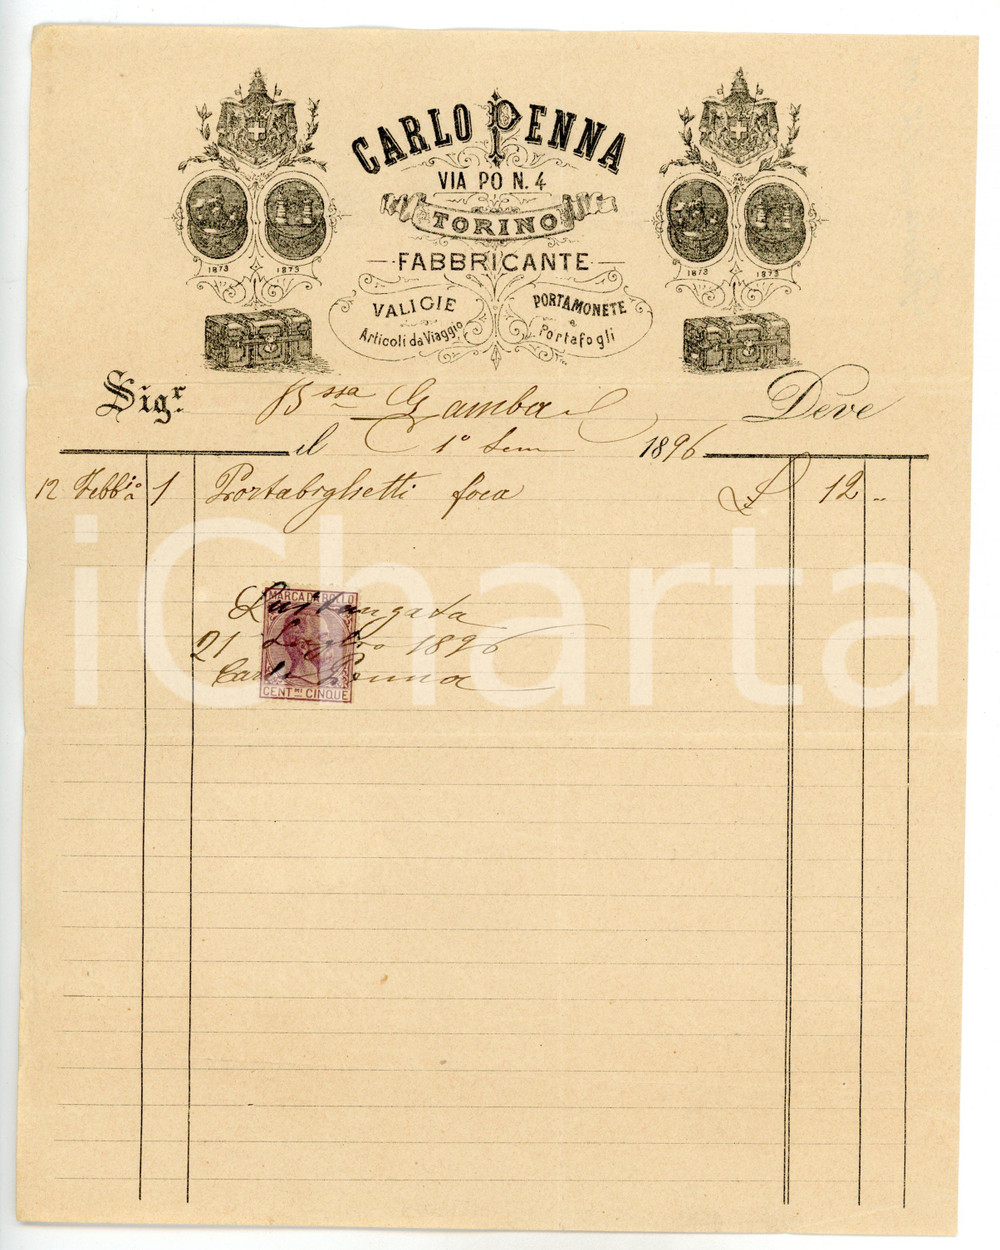 CARLO PENNA
VIA PO N. 4
TORINO
FABBRICANTE
VALIGIE
Articoli da Viaggio
PORTAMONETE
e
Portafogli
1873 1873
1873 1873
Sigr. Bssa Gamba Deve
il 1° Sem 1896
12 Febbio 1 Portabiglietti foca £ 12 ..
MARCA DA BOLLO
21 Luglio 1896
Carlo Penna
CENT.MI CINQUE
iCharta